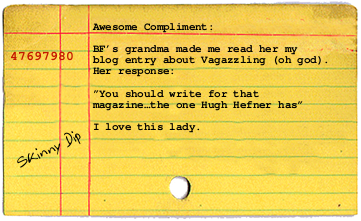 Awesome Compliment:
47697980
BF's grandma made me read her my
blog entry about Vagazzling (oh god).
Her response:
"You should write for that
magazine…the one Hugh Hefner has"
I love this lady.
Skinny Dip